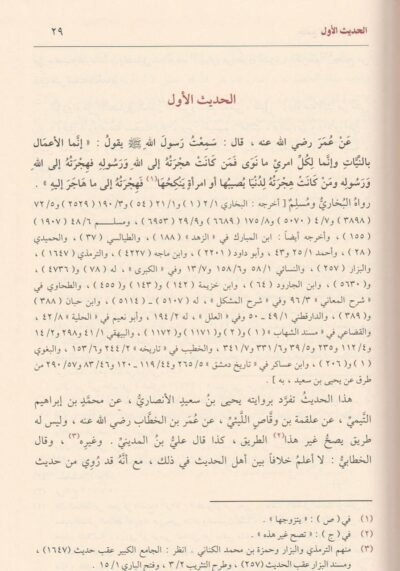 الحديث الأول
٢٩
الحديث الأول
عَنْ عُمَرَ رضي الله عنه ، قال : سَمِعْتُ رَسولَ اللهِ ﷺ يقولُ : « إنَّما الأعمَال
بالنِّيَّاتِ وإنَّما لِكُلِّ امرئٍ ما نَوَى فَمَن كَانَتْ هِجْرَتُهُ إلى اللهِ وَرَسُولِهِ فهِجْرَتُهُ إلى اللهِ
وَرَسُولِهِ ومَنْ كَانَتْ هِجْرَتُهُ لِدُنْيَا يُصيبُها أو امرأةٍ يَنكِحُهَا(١) فهِجْرَتُهُ إلى ما هَاجَرَ إليهِ » .
رواهُ البُخَاريُّ ومُسلِمٌ [ أخرجه : البخاري ٢/١ ( ١ ) و٢١/١ ( ٥٤ ) و١٩٠/٣ ( ٢٥٢٩ ) و٧٢/٥
( ٣٨٩٨ ) و٤/٧ ( ٥٠٧٠ ) و١٧٥/٨ ( ٦٦٨٩ ) و٢٩/٩ ( ٦٩٥٣ ) ، ومسلم ٤٨/٦ ( ١٩٠٧ )
( ١٥٥ ) ، وأخرجه أيضاً : ابن المبارك في « الزهد » ( ١٨٨ ) ، والطيالسي ( ٣٧ ) ، والحميدي
( ٢٨ ) ، وأحمد ٢٥/١ و٤٣ ، وأبو داود ( ٢٢٠١ ) ، وابن ماجه ( ٤٢٢٧ ) ، والترمذي ( ١٦٤٧ ) ،
والبزار ( ٢٥٧ ) ، والنسائي ٥٨/١ و١٥٨/٦ و١٣/٧ وفي « الكبرى » ، له ( ٧٨ ) و( ٤٧٣٦ )
و( ٥٦٣٠ ) ، وابن الجارود ( ٦٤ ) ، وابن خزيمة ( ١٤٢ ) و( ١٤٣ ) و( ٤٥٥ ) ، والطحاوي في
« شرح المعاني » ٩٦/٣ وفي « شرح المشكل » ، له ( ٥١٠٧ ) ـ ( ٥١١٤ ) ، وابن حبان ( ٣٨٨ )
و( ٣٨٩ ) ، والدارقطني ٤٩/١ ـ ٥٠ وفي « العلل » ، له ١٩٤/٢ ، وأبو نعيم في « الحلية » ٤٢/٨ ،
والقضاعي في « مسند الشهاب » ( ١ ) و( ٢ ) و( ١١٧١ ) و( ١١٧٢ ) ، والبيهقي ٤١/١ و٢٩٨ و١٤/٢
و١١٢/٤ و٢٣٥ و٣٩/٥ و٣٣١/٦ و٣٤١/٧ ، والخطيب في « تاريخه » ٢٤٤/٢ و١٥٣/٦ ، والبغوي
( ١ ) و( ٢٠٦ ) ، وابن عساكر في « تاريخ دمشق » ٢٦٥/٥ و١١٩/٤٤ ـ ١٢٠ و٨٣/٤٦ و٢٩٠/٥٧ من
طرق عن يحيى بن سعيد ، به ] .
هذا الحديثُ تفرَّد بروايته يحيى بنُ سعيدٍ الأنصاريُّ ، عن محمَّدِ بن إبراهيم
التَّيميِّ ، عن علقمة بن وقَّاصٍ اللَّيثيِّ ، عن عُمَر بن الخطَّاب رضي الله عنه ، وليس له
طريق يصحُّ غير هذا(٢) الطريق ، كذا قال عليُّ بنُ المدينيِّ . وغيرُه(٣) ، وقال
الخطابيُّ : لا أعلمُ خلافاً بين أهل الحديث في ذلك ، مع أنَّهُ قد رُوِيَ من حديث
(١) في ( ص ) : « يتزوجها » .
(٢) في ( ج ) : « تصح غير هذه » .
(٣) منهم الترمذي والبزار وحمزة بن محمد الكناني . انظر : الجامع الكبير عقب حديث (١٦٤٧) ،
ومسند البزار عقب الحديث (٢٥٧) ، وطرح التثريب ٣/٢ ، وفتح الباري ١٥/١ .